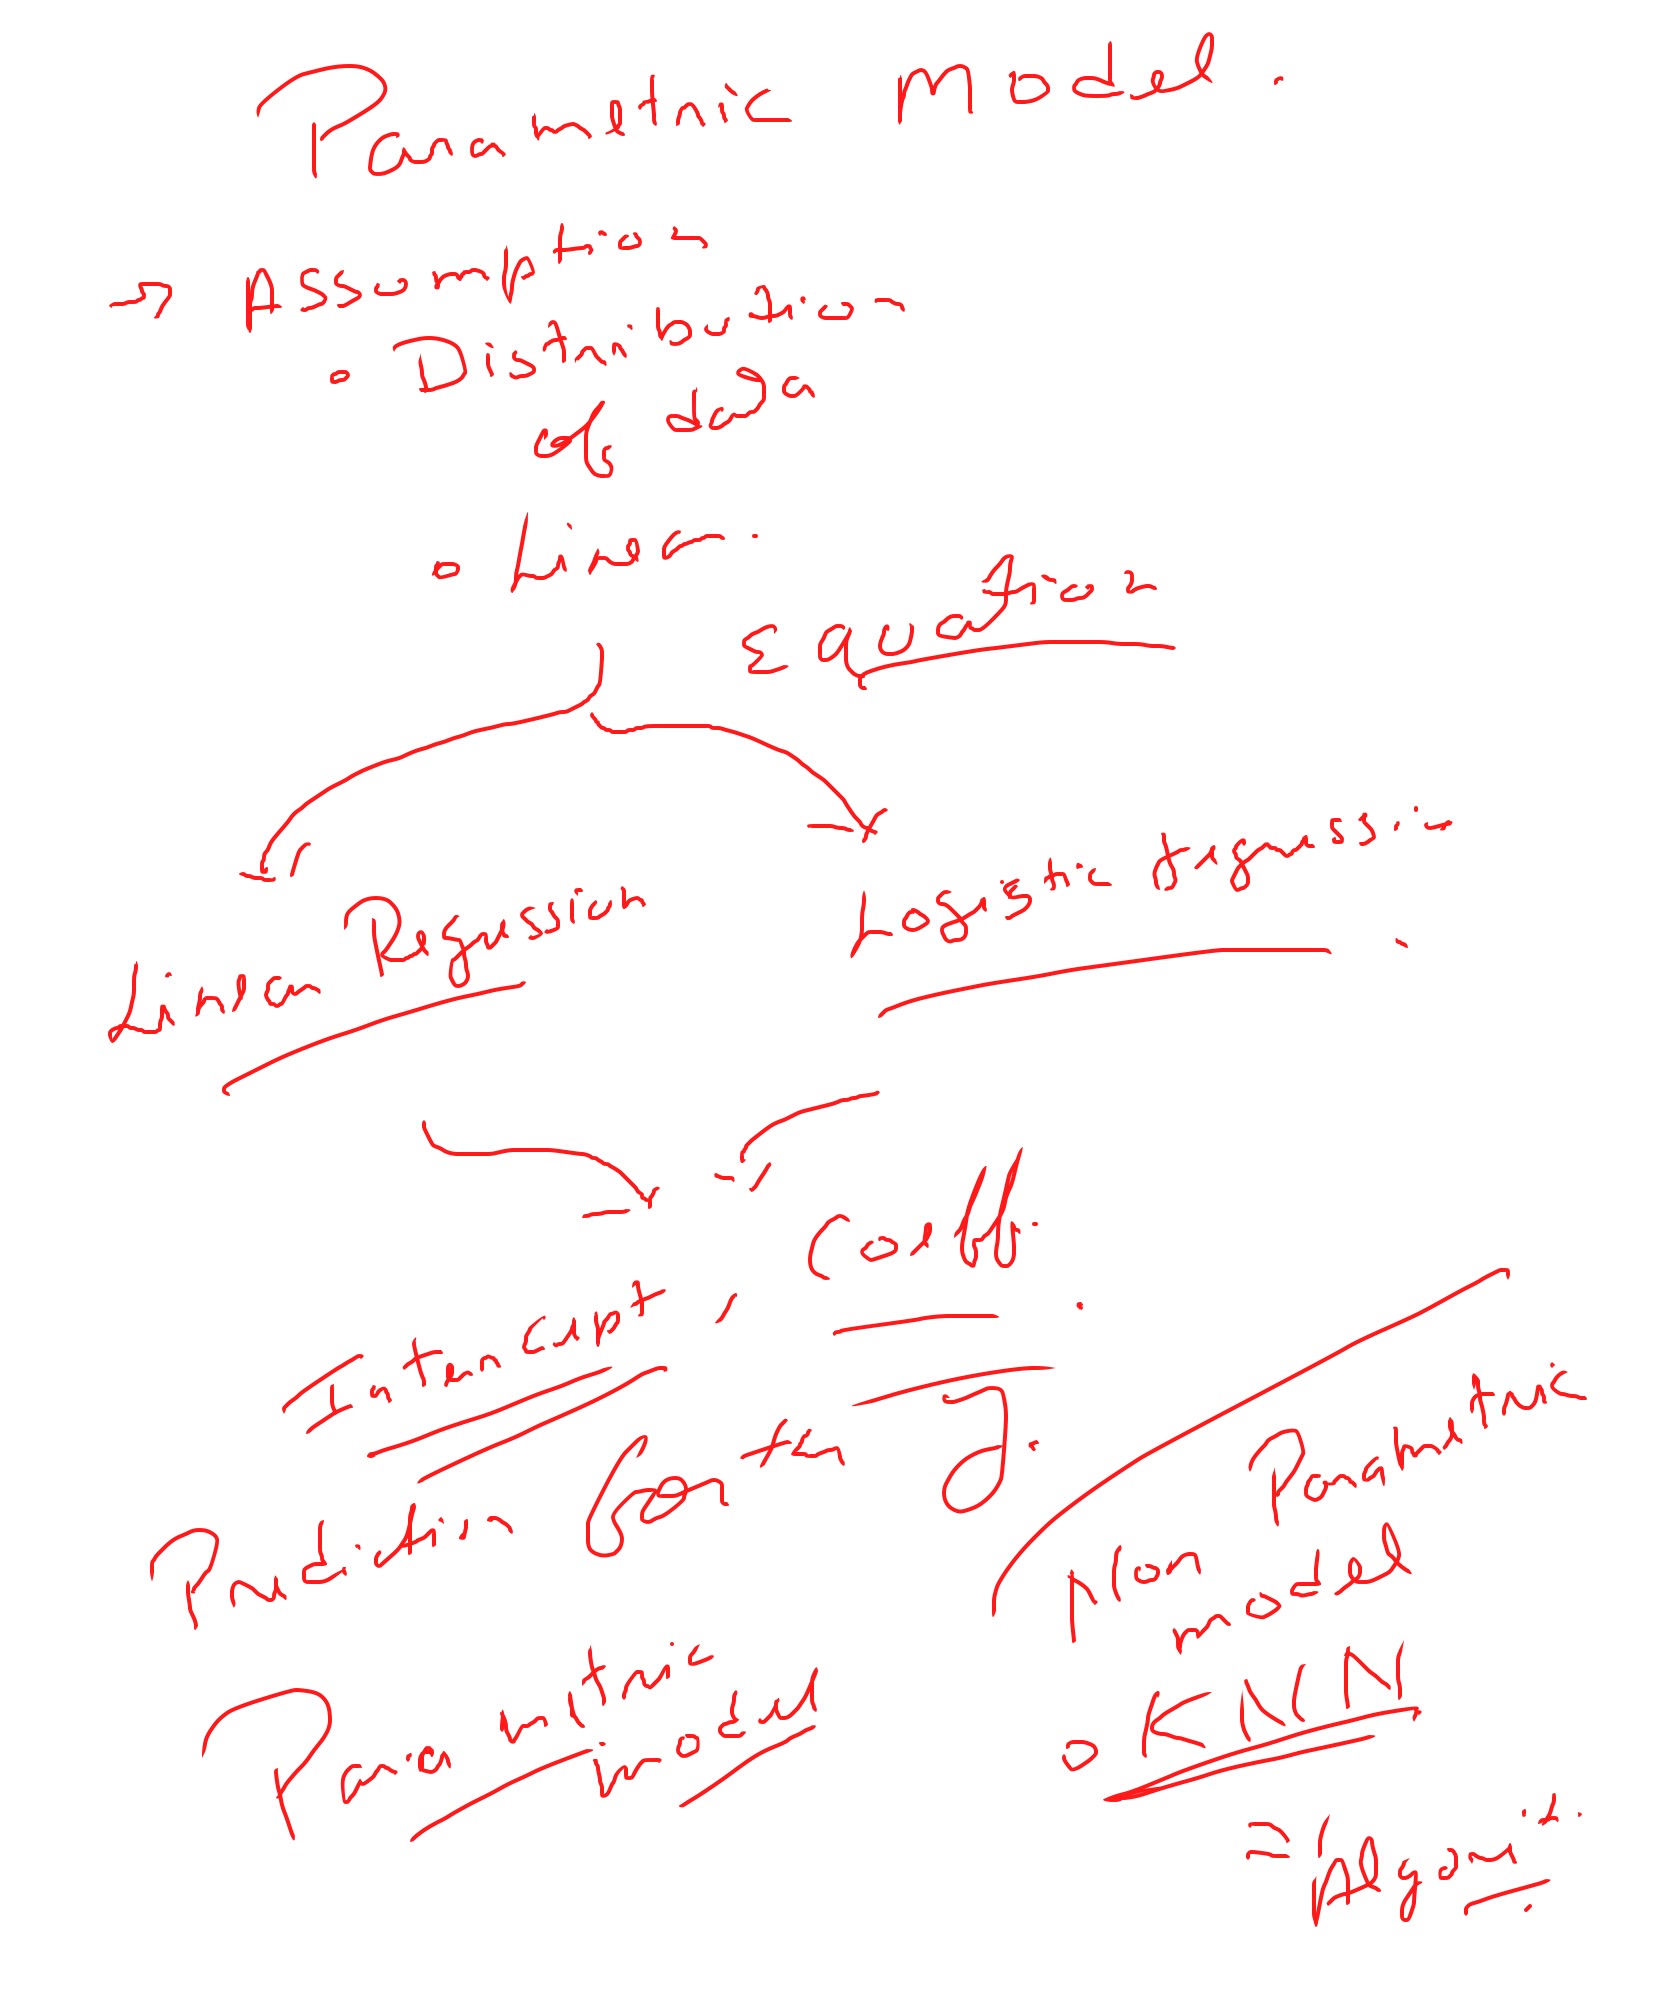 Parametric Model.
→ Assumption
o Distribution
of data
o Linear.
Equation
Linear Regression
Logistic regression
Intercept, Coeff.
Prediction faster
Parametric
model
Non Parametric
model
o KNN
= Algorit.